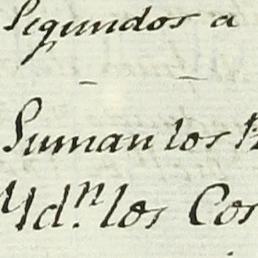 Segundos a
Suman los
Ydⁿ. los Cos